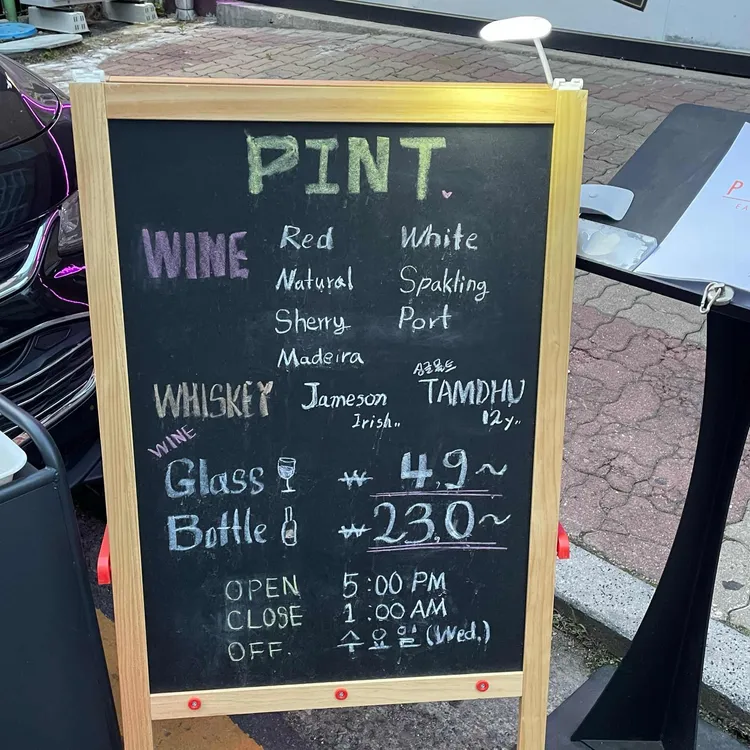 PINT
WINE Red White
Natural Spakling
Sherry Port
Madeira
싱글몰트
WHISKEY Jameson TAMDHU
Irish.. 12y..
WINE
Glass ₩ 4,9~
Bottle ₩ 23,0~
OPEN 5:00 PM
CLOSE 1:00 AM
OFF. 수요일 (Wed,)